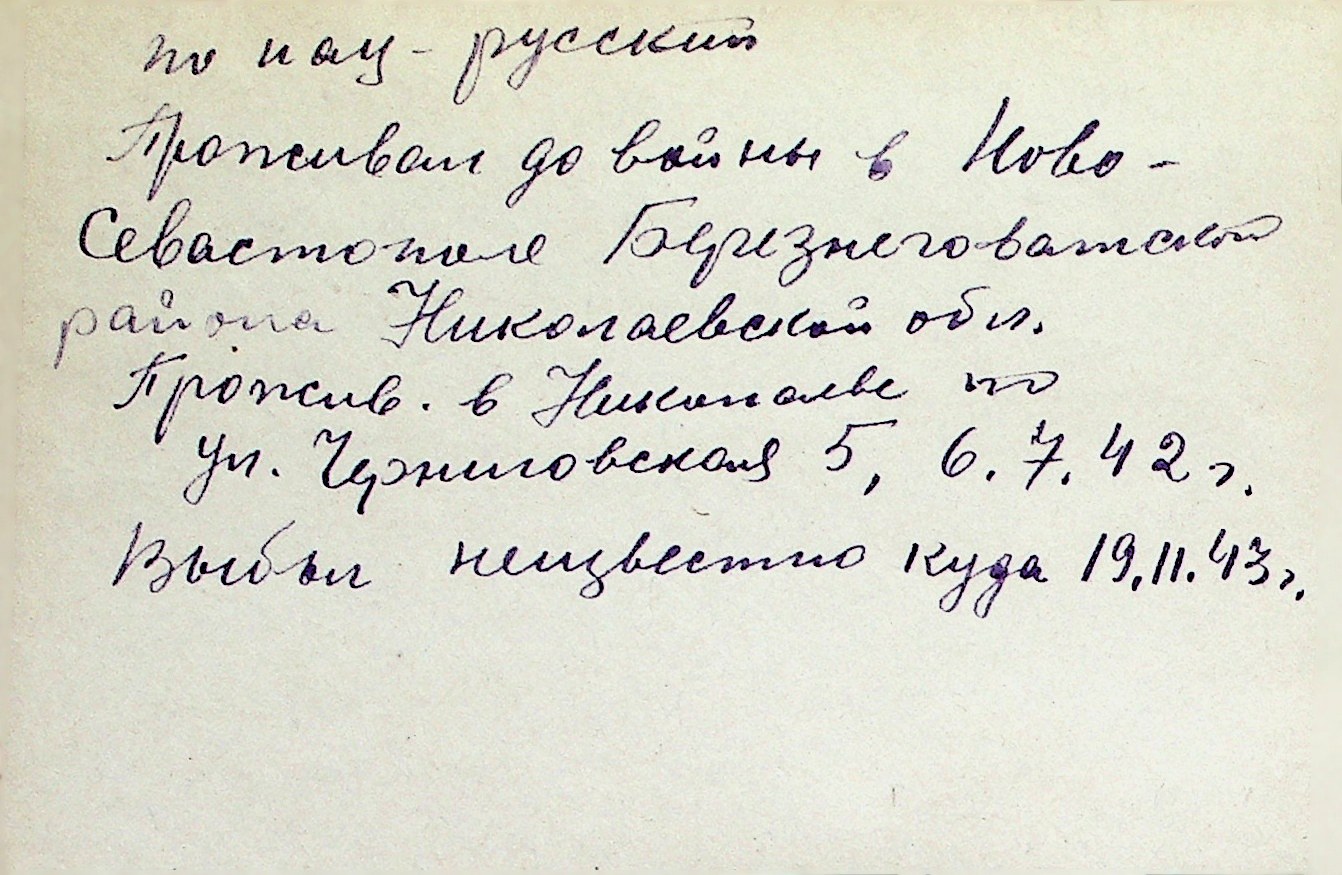 по нац - русский
Проживал до войны в Ново-
Севастополе Березнеговатской
района Николаевской обл.
Прожив. в Николаеве по
ул. Черниговская 5, 6.7.42 г.
Выбыл неизвестно куда 19.11.43 г.